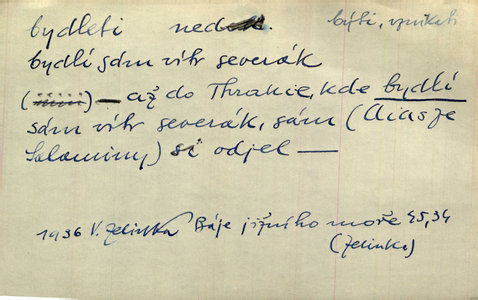 bydleti ned. býti, vznikati
bydlí sám vítr severák
() — až do Thrakie, kde bydlí
sám vítr severák, sám (Aiasze
Salaminy) si odjel —
1936 V. Zelinka Báje jižního moře 45,34
(Zelinka)